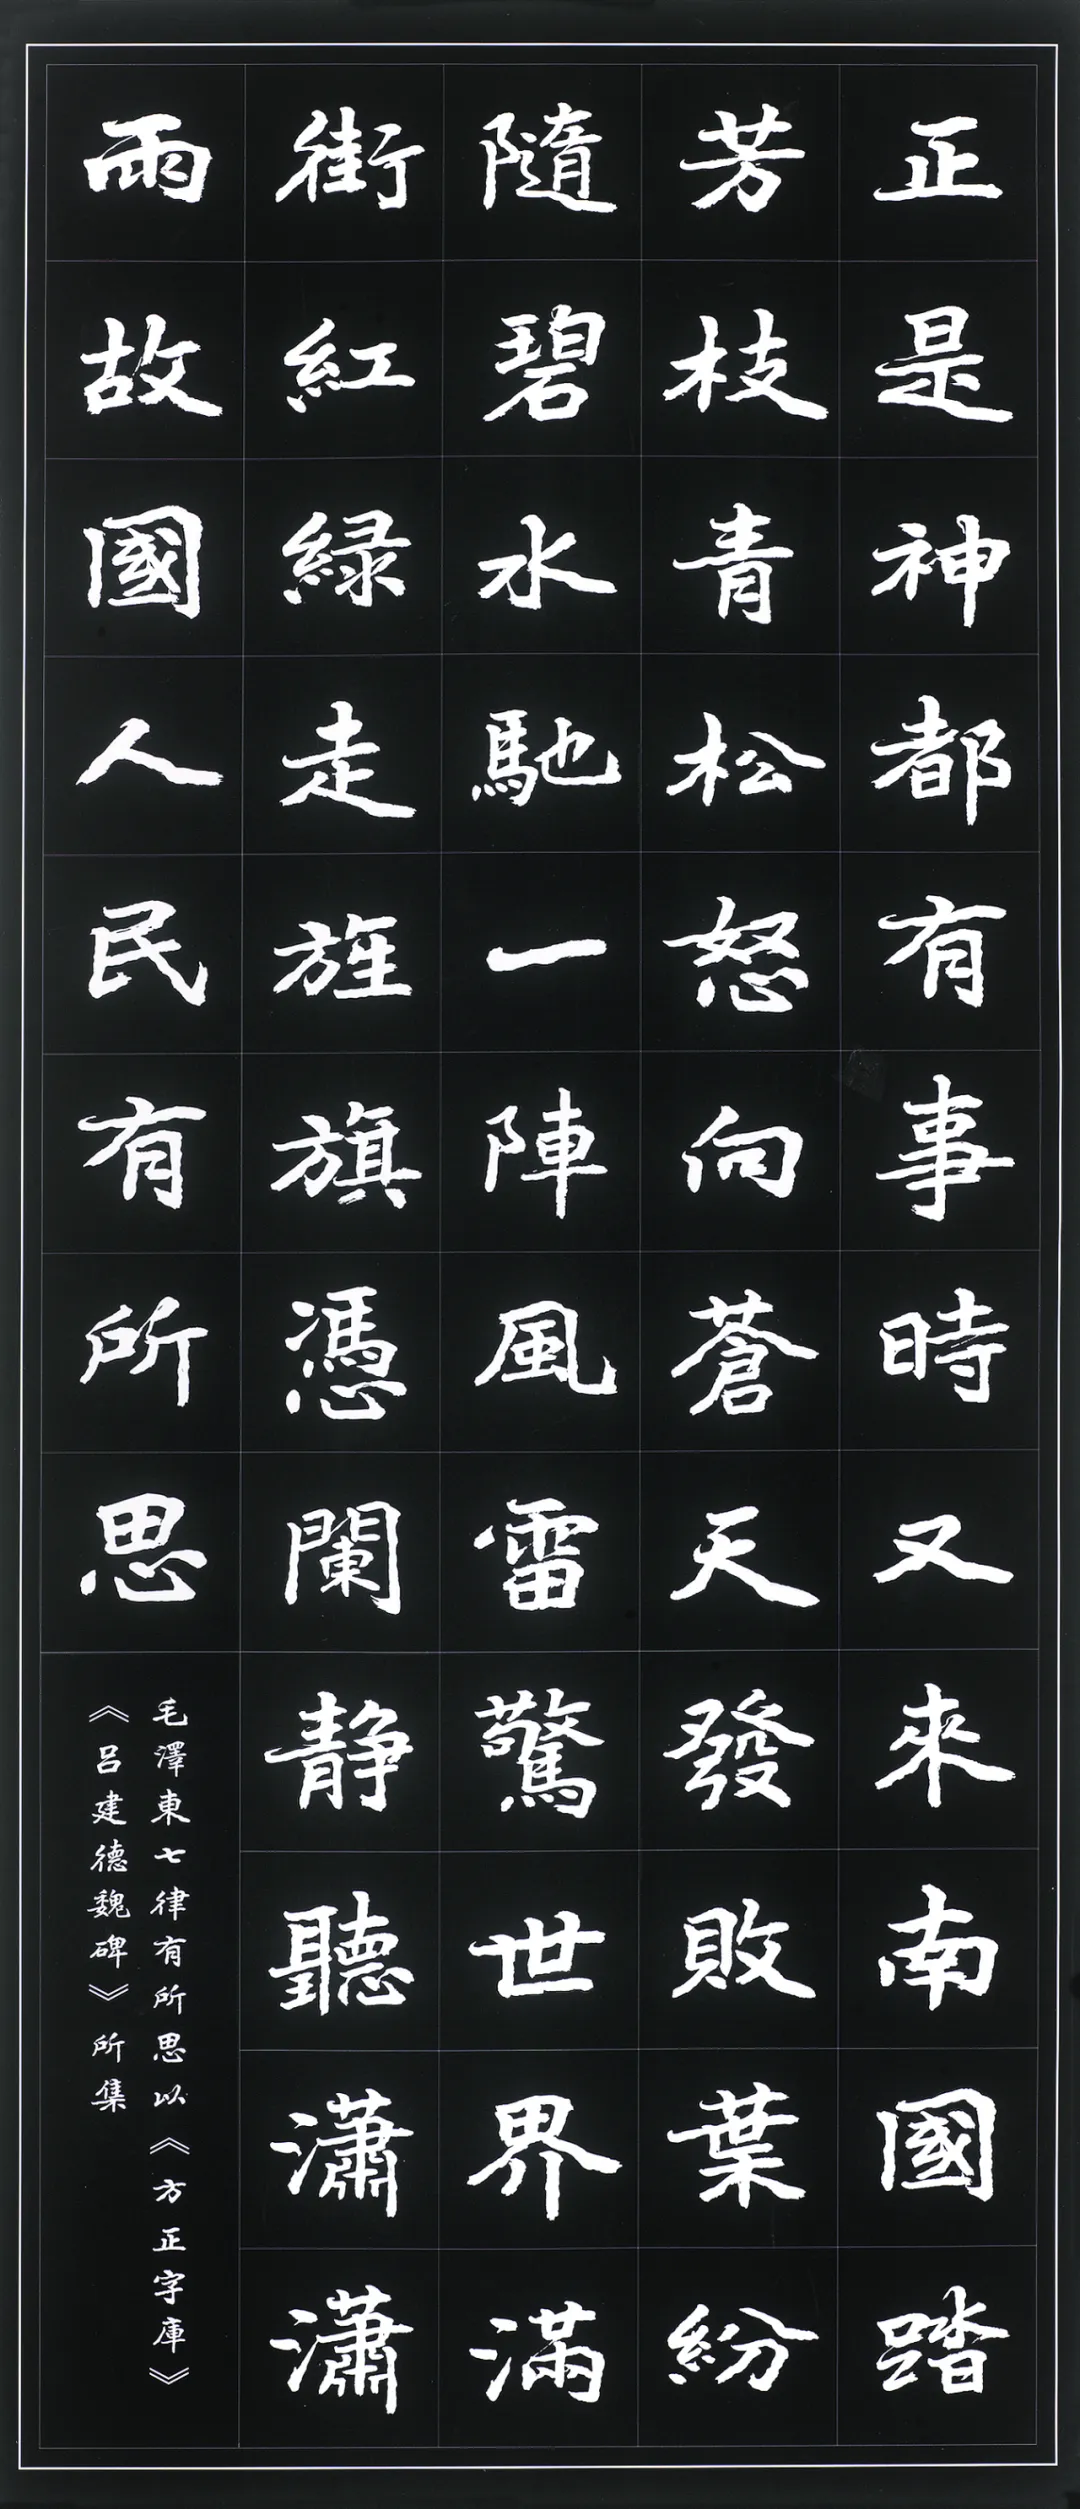 正是神都有事時又來南國踏
芳枝青松怒向蒼天發敗葉紛
隨碧水馳一陣風雷驚世界滿
街紅綠走旌旗憑闌静聽瀟瀟
雨故國人民有所思
毛澤東七律有所思以《方正字庫》
《吕建德魏碑》所集